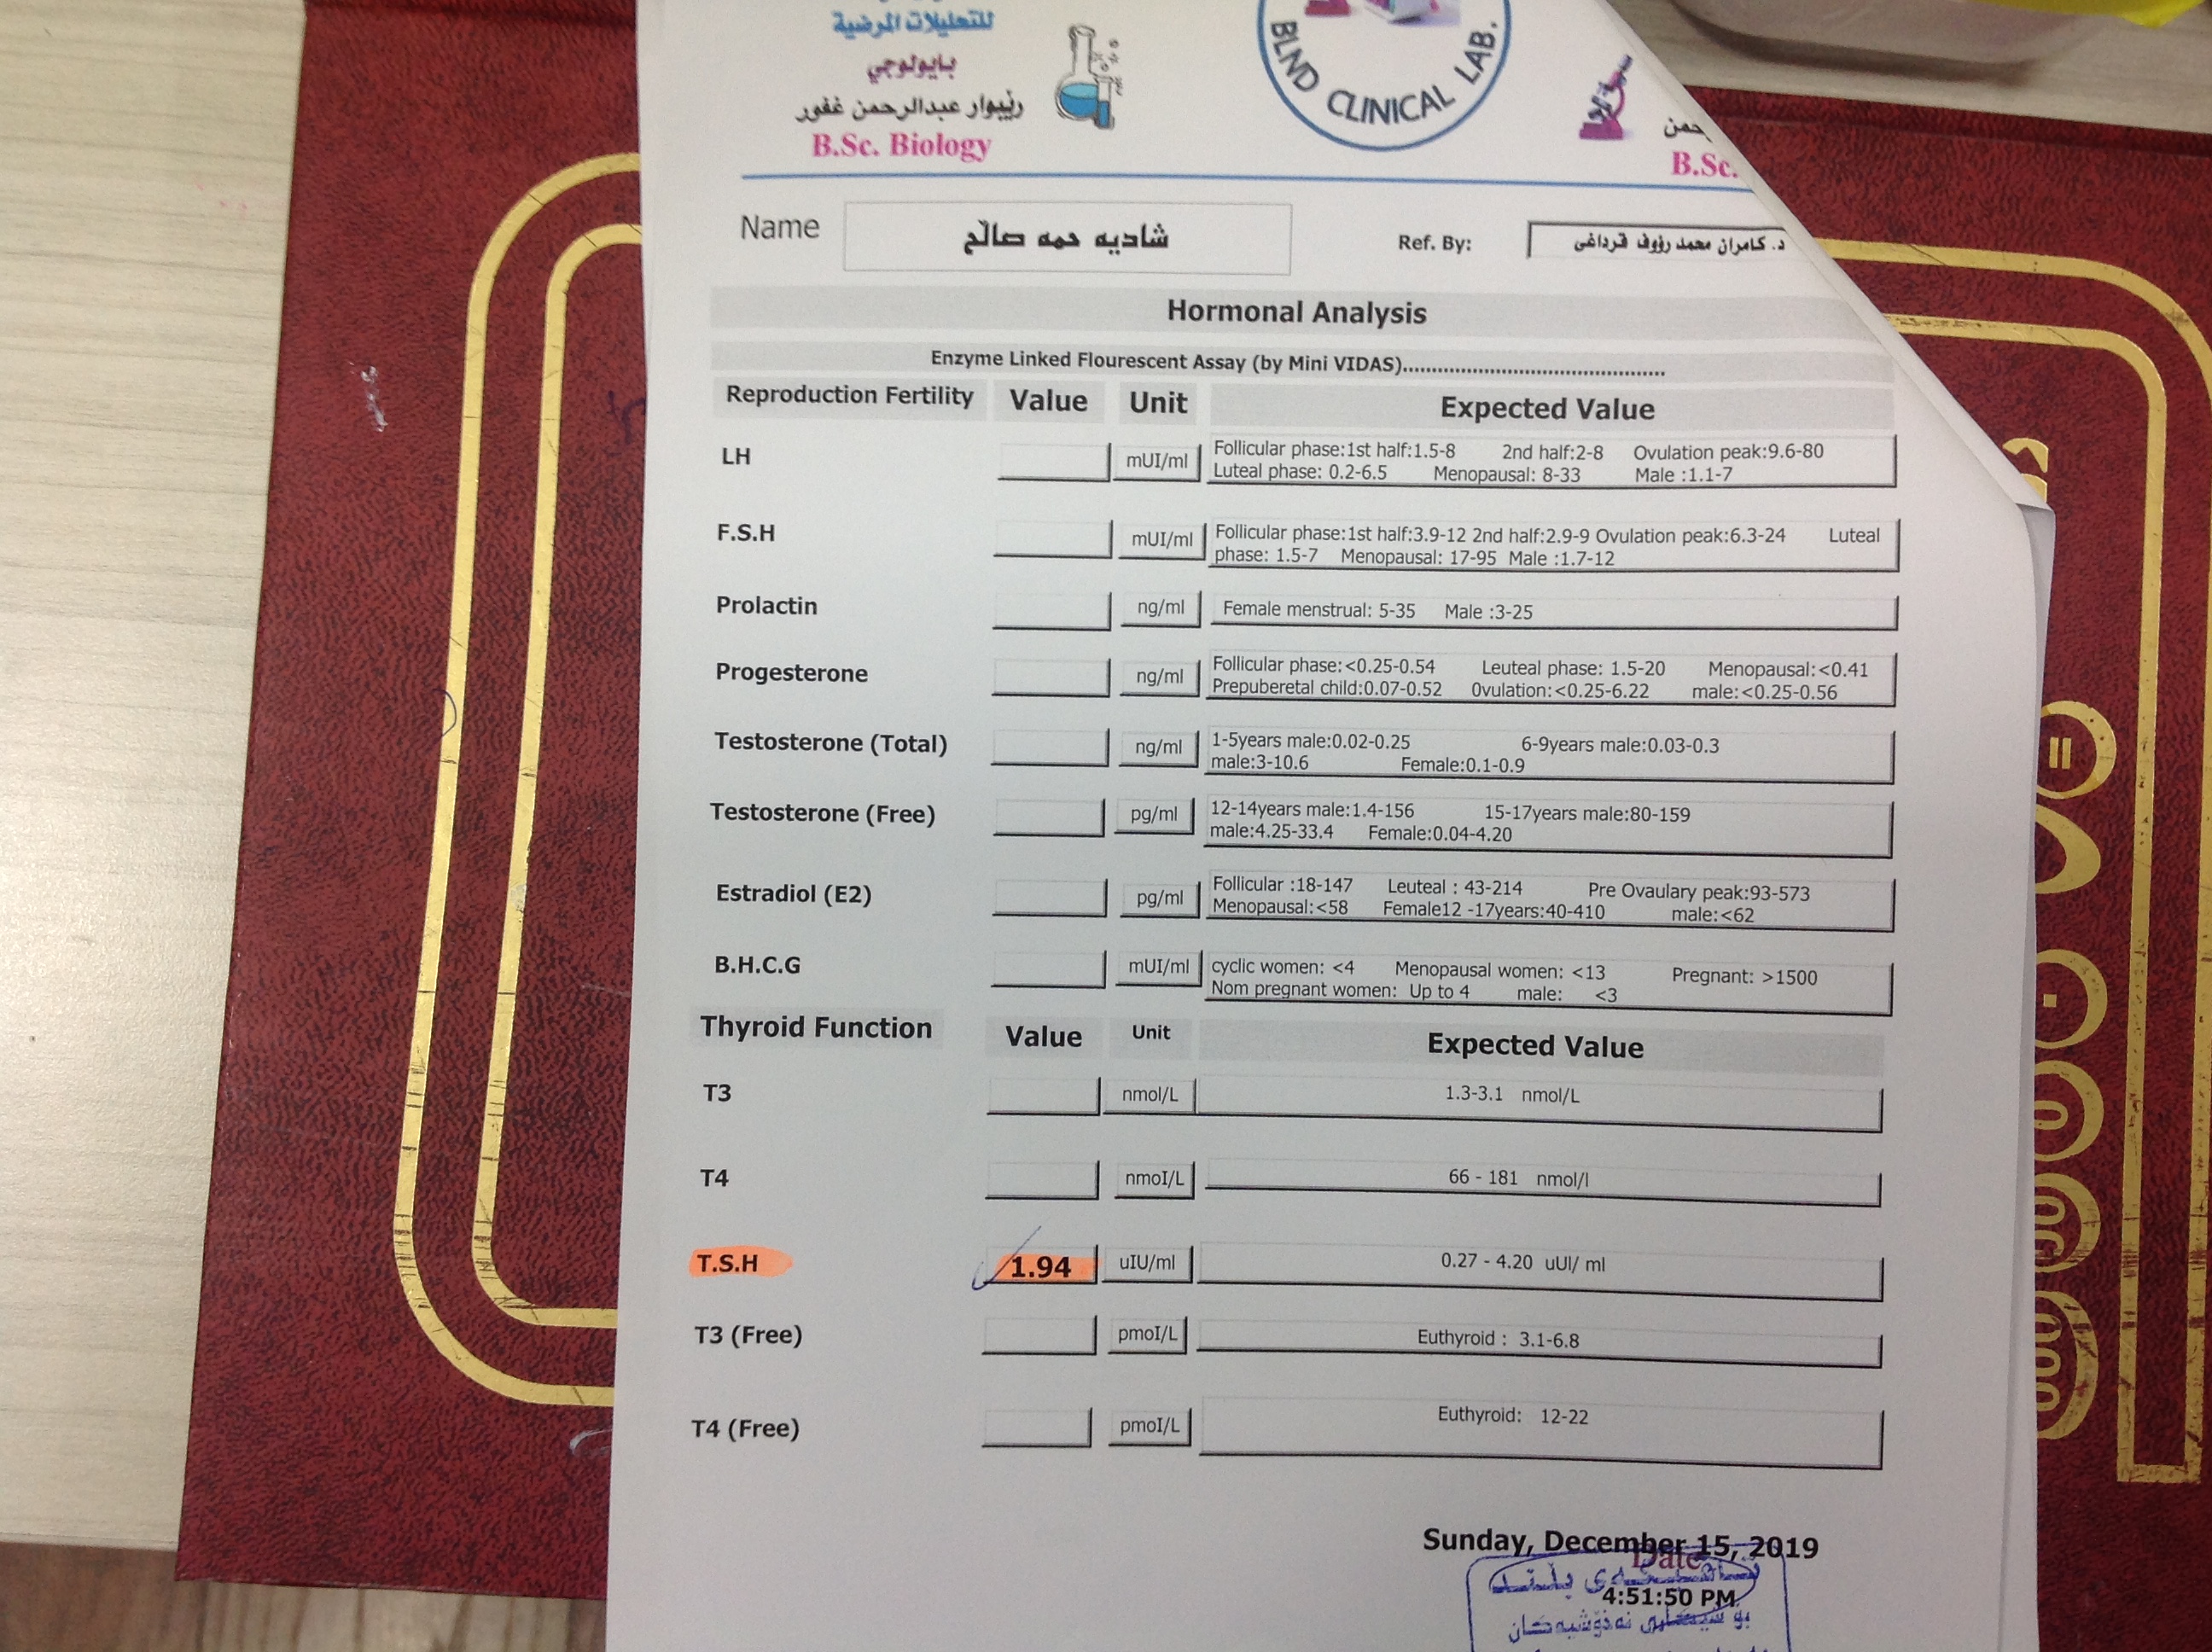 للتحليلات المرضية
بايولوجي
ريبوار عبدالرحمن غفور
B.Sc. Biology
BLND CLINICAL LAB.
B.Sc.
Name
شادیه حمه صاڵح
Ref. By:
د. كامران محمد رؤوف قرداغی
Hormonal Analysis
Enzyme Linked Flourescent Assay (by Mini VIDAS).............................................
Reproduction Fertility Value Unit Expected Value
LH mUI/ml Follicular phase:1st half:1.5-8 2nd half:2-8 Ovulation peak:9.6-80
Luteal phase: 0.2-6.5 Menopausal: 8-33 Male :1.1-7
F.S.H mUI/ml Follicular phase:1st half:3.9-12 2nd half:2.9-9 Ovulation peak:6.3-24 Luteal
phase: 1.5-7 Menopausal: 17-95 Male :1.7-12
Prolactin ng/ml Female menstrual: 5-35 Male :3-25
Progesterone ng/ml Follicular phase:<0.25-0.54 Leuteal phase: 1.5-20 Menopausal:<0.41
Prepuberetal child:0.07-0.52 Ovulation:<0.25-6.22 male:<0.25-0.56
Testosterone (Total) ng/ml 1-5years male:0.02-0.25 6-9years male:0.03-0.3
male:3-10.6 Female:0.1-0.9
Testosterone (Free) pg/ml 12-14years male:1.4-156 15-17years male:80-159
male:4.25-33.4 Female:0.04-4.20
Estradiol (E2) pg/ml Follicular :18-147 Leuteal : 43-214 Pre Ovaulary peak:93-573
Menopausal:<58 Female12 -17years:40-410 male:<62
B.H.C.G mUI/ml cyclic women: <4 Menopausal women: <13 Pregnant: >1500
Nom pregnant women: Up to 4 male: <3
Thyroid Function Value Unit Expected Value
T3 nmol/L 1.3-3.1 nmol/L
T4 nmoI/L 66 - 181 nmol/l
T.S.H 1.94 uIU/ml 0.27 - 4.20 uUI/ ml
T3 (Free) pmoI/L Euthyroid : 3.1-6.8
T4 (Free) pmoI/L Euthyroid: 12-22
Sunday, December 15, 2019
Date
4:51:50 PM
بۆ شیکاری نەخۆشیەکان